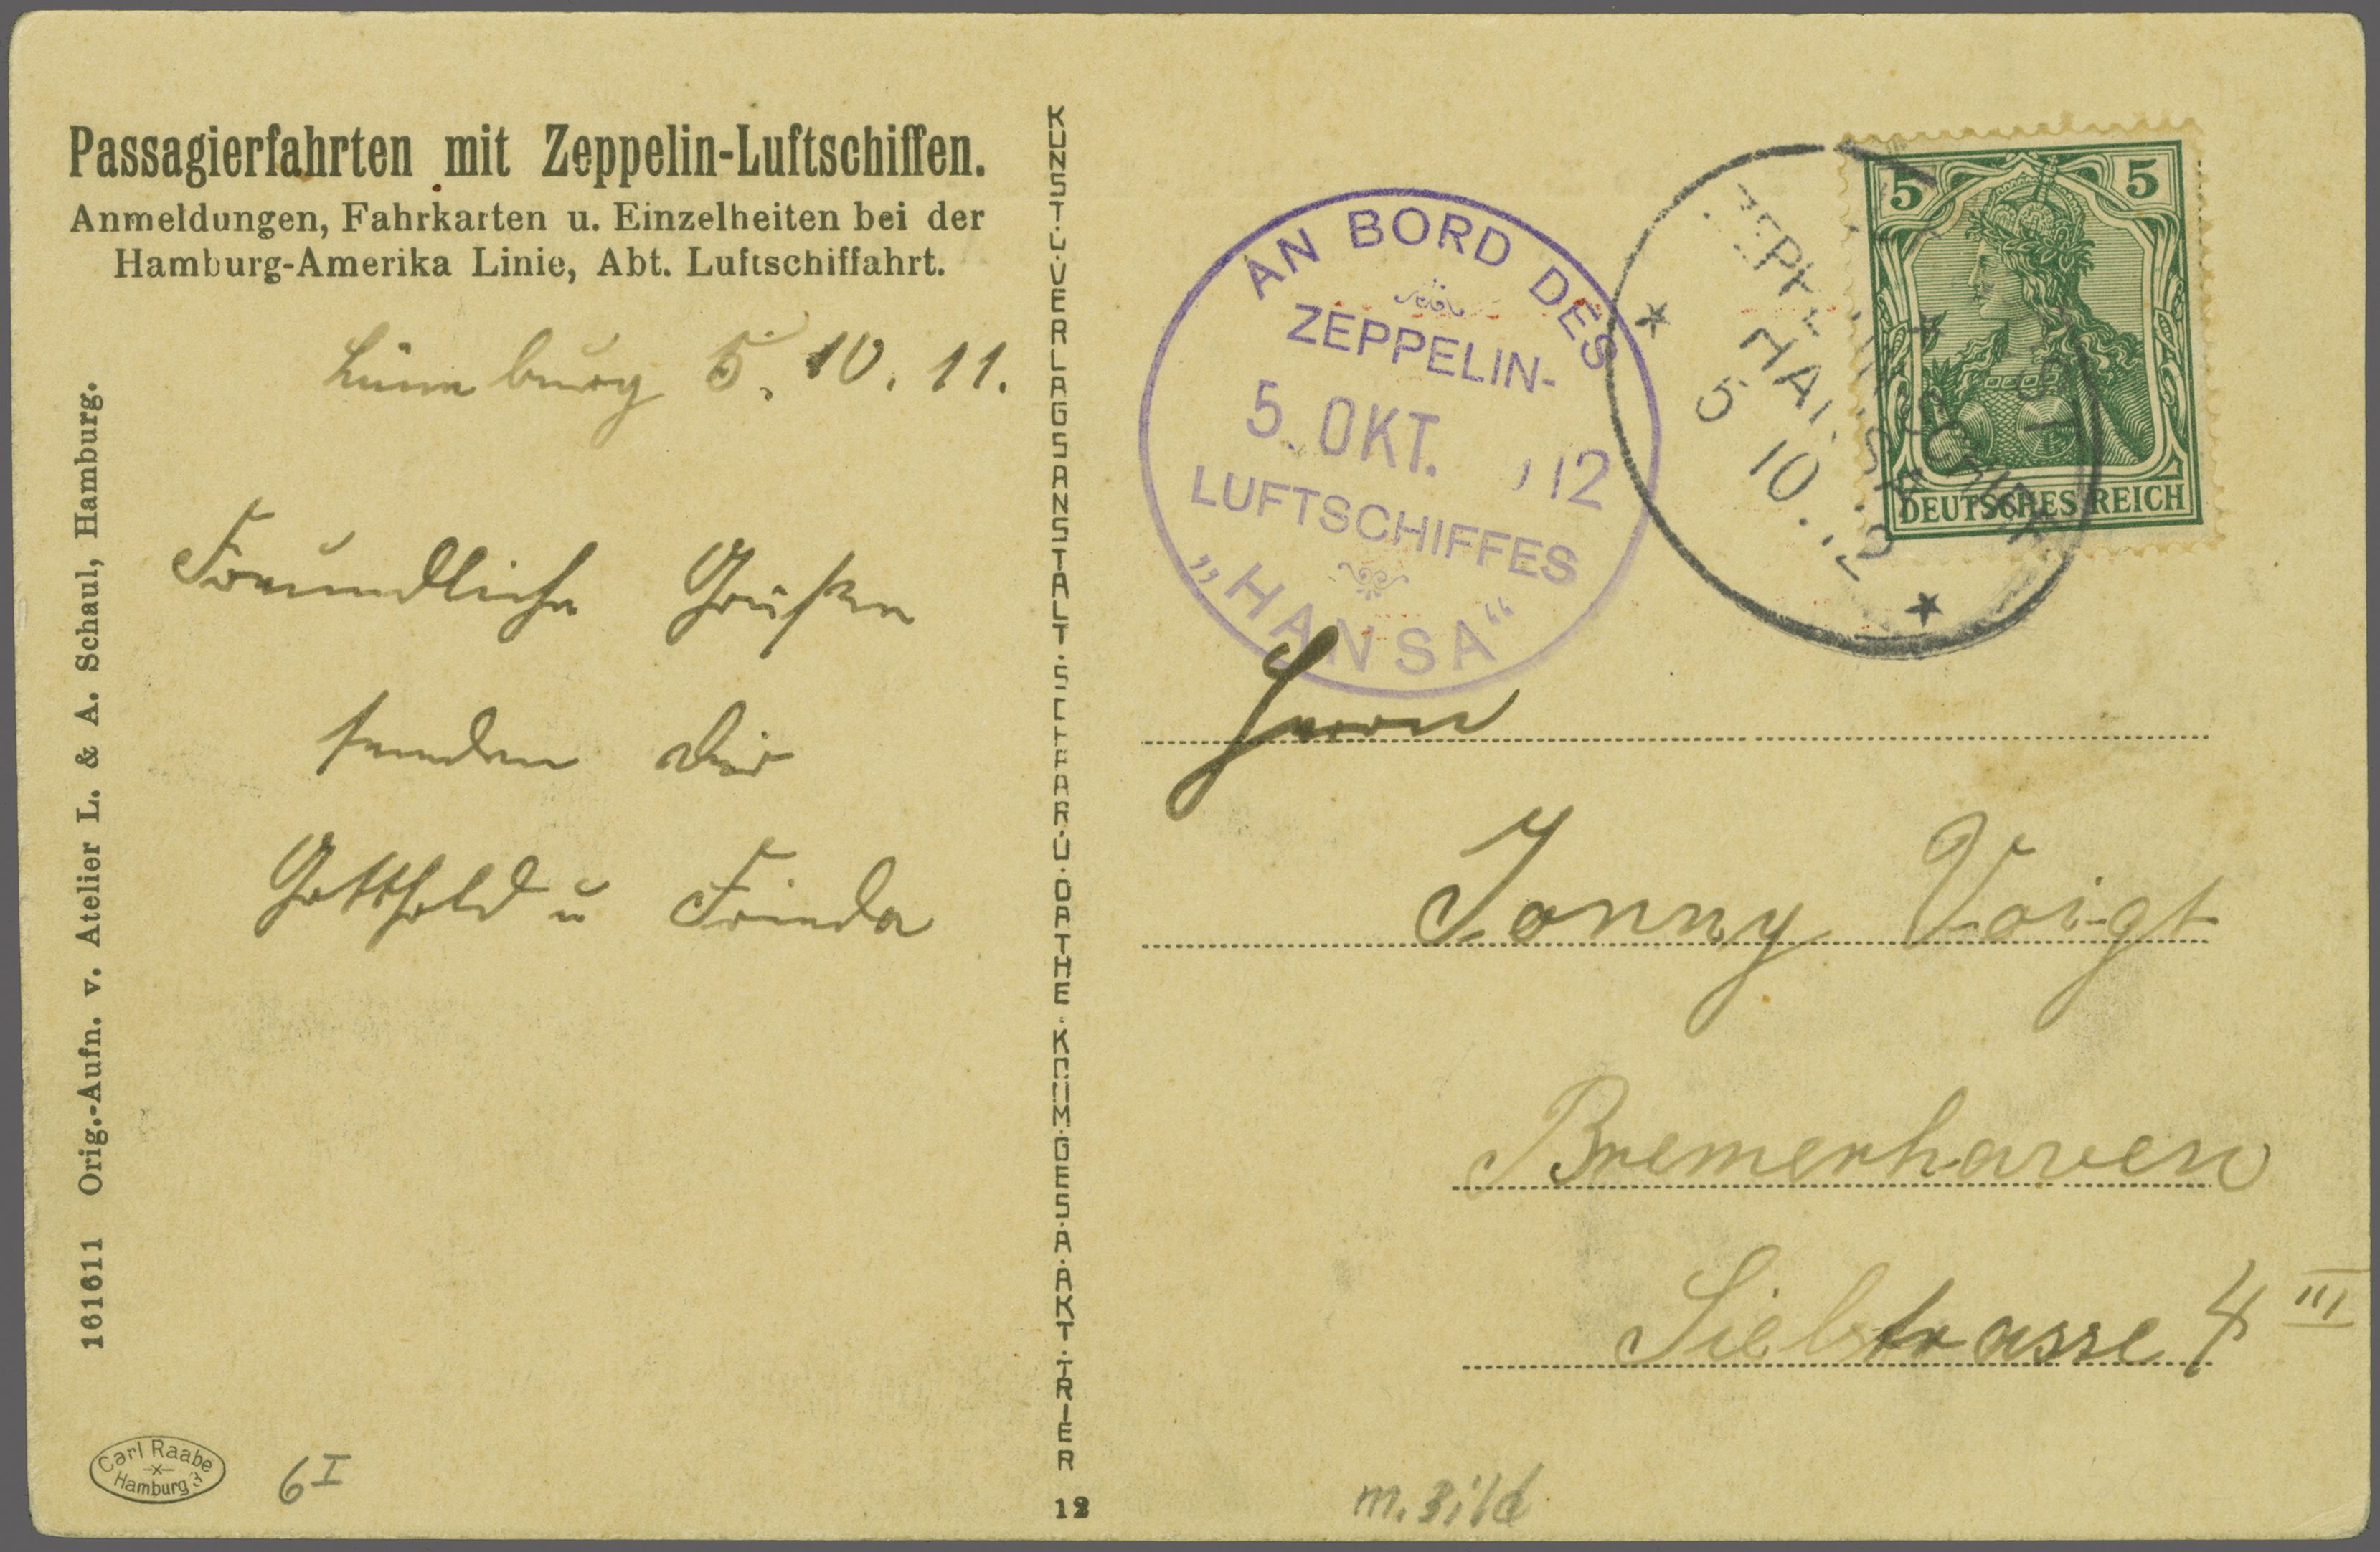 Passagierfahrten mit Zeppelin-Luftschiffen.
Anmeldungen, Fahrkarten u. Einzelheiten bei der
Hamburg-Amerika Linie, Abt. Luftschiffahrt.
5. 10. 11.
Freundliche Grüße
senden Dir
Gotthold u Frieda
161611 Orig.-Aufn. v. Atelier L. & A. Schaul, Hamburg.
Carl Raabe
Hamburg 3
6 I
KUNST·U·VERLAGSANSTALT·SCHAAR·U·DATHE·KOM·GES·A·AKT·TRIER
12
AN BORD DES
ZEPPELIN-
5. OKT. 12
LUFTSCHIFFES
„HANSA“
HANSA
5 10. 12
5 5
DEUTSCHES REICH
Herrn
Jonny Voigt
Bremerhaven
Sielstrasse 4 III
m. Bild